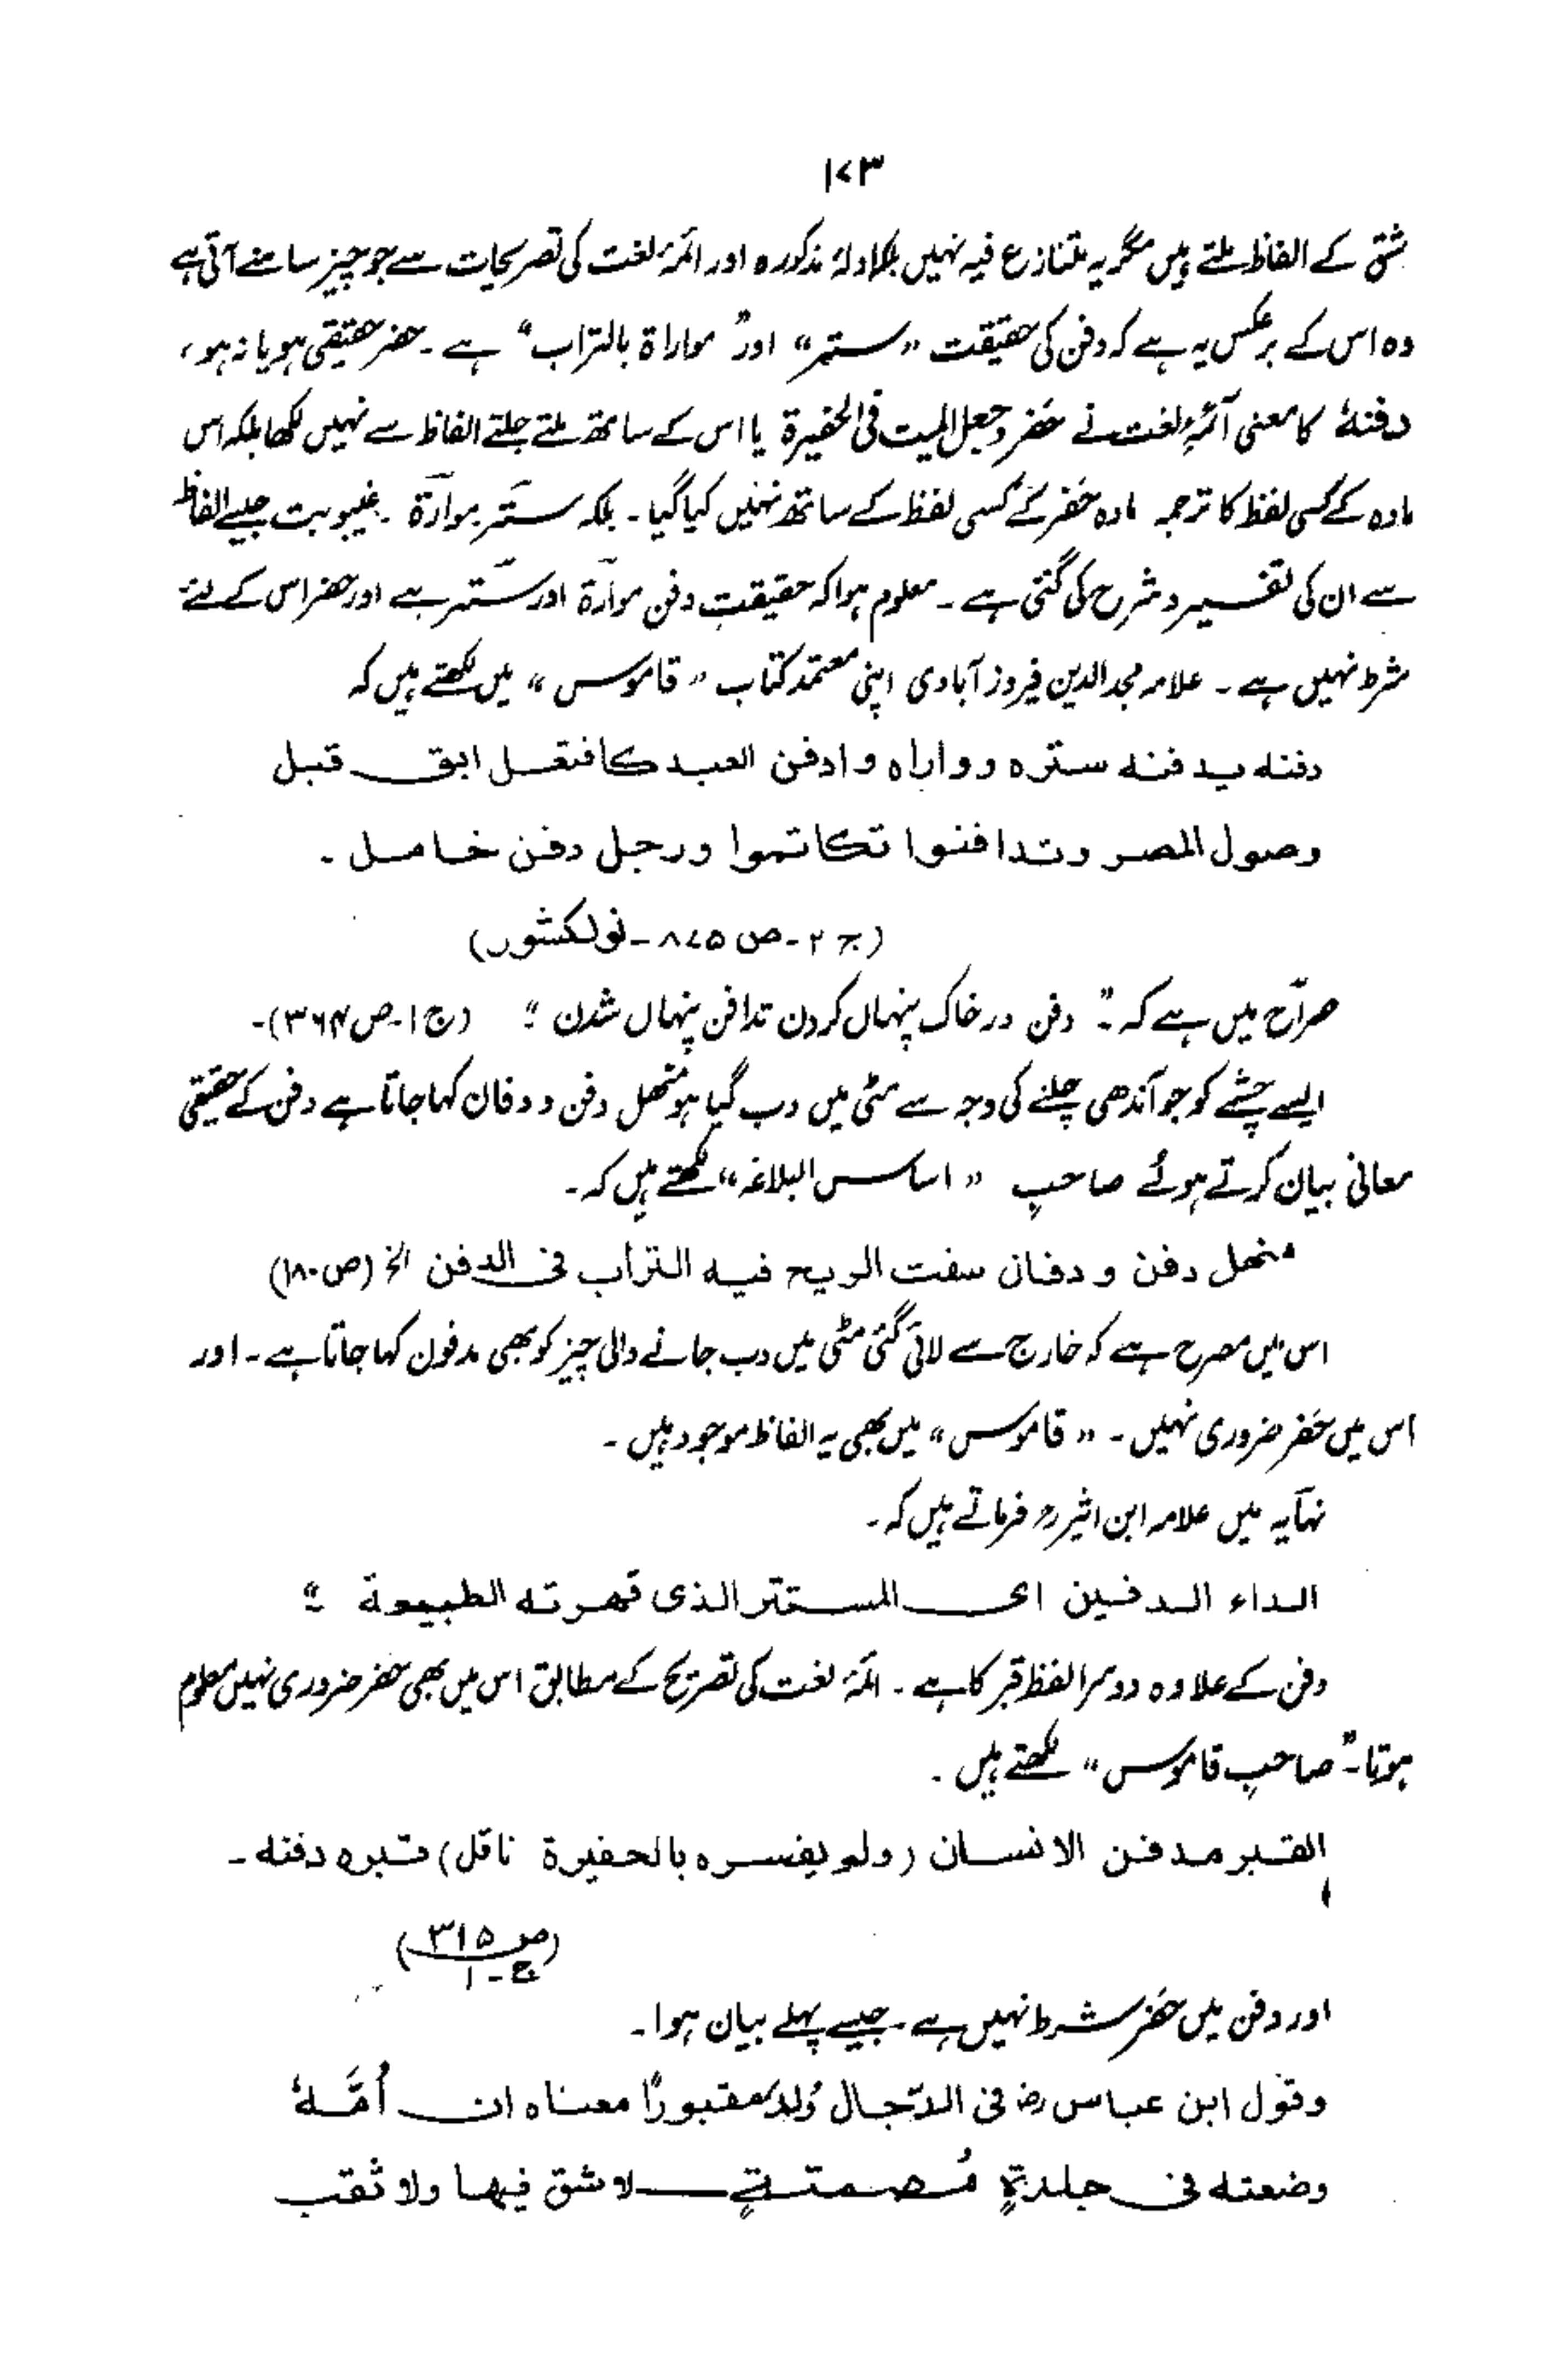 ۱۷۳
شق کے الفاظ ملتے ہیں مگر یہ متنازع فیہ نہیں بلکہ ادلہٴ مذکورہ اور ائمہٴ لغت کی تصریحات سے جو چیز سامنے آتی ہے
وہ اس کے برعکس یہ ہے کہ دفن کی حقیقت "ستر" اور "مواراۃ بالتراب" ہے ۔ حفر حقیقی ہو یا نہ ہو،
دفنہٗ کا معنی آئمہٴ لغت نے حَفَر وجعل المیت فی الحفیرۃ یا اس کے ساتھ ملتے جلتے الفاظ سے نہیں لکھا بلکہ اس
مادہ کے کسی لفظ کا ترجمہ مادہ حَفَر کے کسی لفظ کے ساتھ نہیں کیا گیا ۔ بلکہ ستر موارۃ ۔ غیبوبت جیسے الفاظ
سے ان کی تفسیر و شرح کی گئی ہے ۔ معلوم ہوا کہ حقیقتِ دفن موارۃ اور ستر ہے اور حفر اس کے لئے
شرط نہیں ہے ۔ علامہ مجدالدین فیروز آبادی اپنی معتمد کتاب "قاموس" میں لکھتے ہیں کہ
دفنہ یدفنہ سترہ وواراہ وادفن العبد کافتعل ابق قبل
وصول المصر وتدافنوا تکاتموا ورجل دفن خامل ۔
(ج ۲ ۔ ص ۸۷۵ ۔ نولکشور)
صراح میں ہے کہ :" دفن در خاک پنہاں کردن تدافن پنہاں شدن :" (ج ۱ ۔ ص ۳۶۴) ۔
ایسے چشمے کو جو آندھی چلنے کی وجہ سے مٹی میں دب گیا ہو منھل دفن و دفان کہا جاتا ہے دفن کے حقیقی
معانی بیان کرتے ہوئے صاحبِ "اساس البلاغہ" لکھتے ہیں کہ ۔
منھل دفن و دفان سفت الریح فیہ التراب فی الدفن الخ (ص ۱۸۰)
اس میں مصرح ہے کہ خارج سے لائی گئی مٹی میں دب جانے والی چیز کو بھی مدفون کہا جاتا ہے ۔ اور
اس میں حَفَر ضروری نہیں ۔ "قاموس" میں بھی یہ الفاظ موجود ہیں ۔
نہایہ میں علامہ ابن اثیرؒ فرماتے ہیں کہ ۔
الداء الدفین ای المستتر الذی قھرتہ الطبیعۃ :"
دفن کے علاوہ دوسرا لفظ قبر کا ہے ۔ ائمہٴ لغت کی تصریح کے مطابق اس میں بھی حفر ضروری نہیں معلوم
ہوتا ۔ "صاحبِ قاموس" لکھتے ہیں ۔
القبر مدفن الانسان (ولم یفسرہ بالحفیرۃ ناقل) قبرہ دفنہ ۔
(ص ۳۱۵
ج ۔ ۱)
اور دفن میں حَفَر شرط نہیں ہے ۔ جیسے پہلے بیان ہوا ۔
وقول ابن عباس رض فی الدّجال وُلِدَ مقبورًا معناہ ان اُمَّہٗ
وضعتہ فی جلدۃٍ مُصمتۃٍ لا شق فیھا ولا ثقب